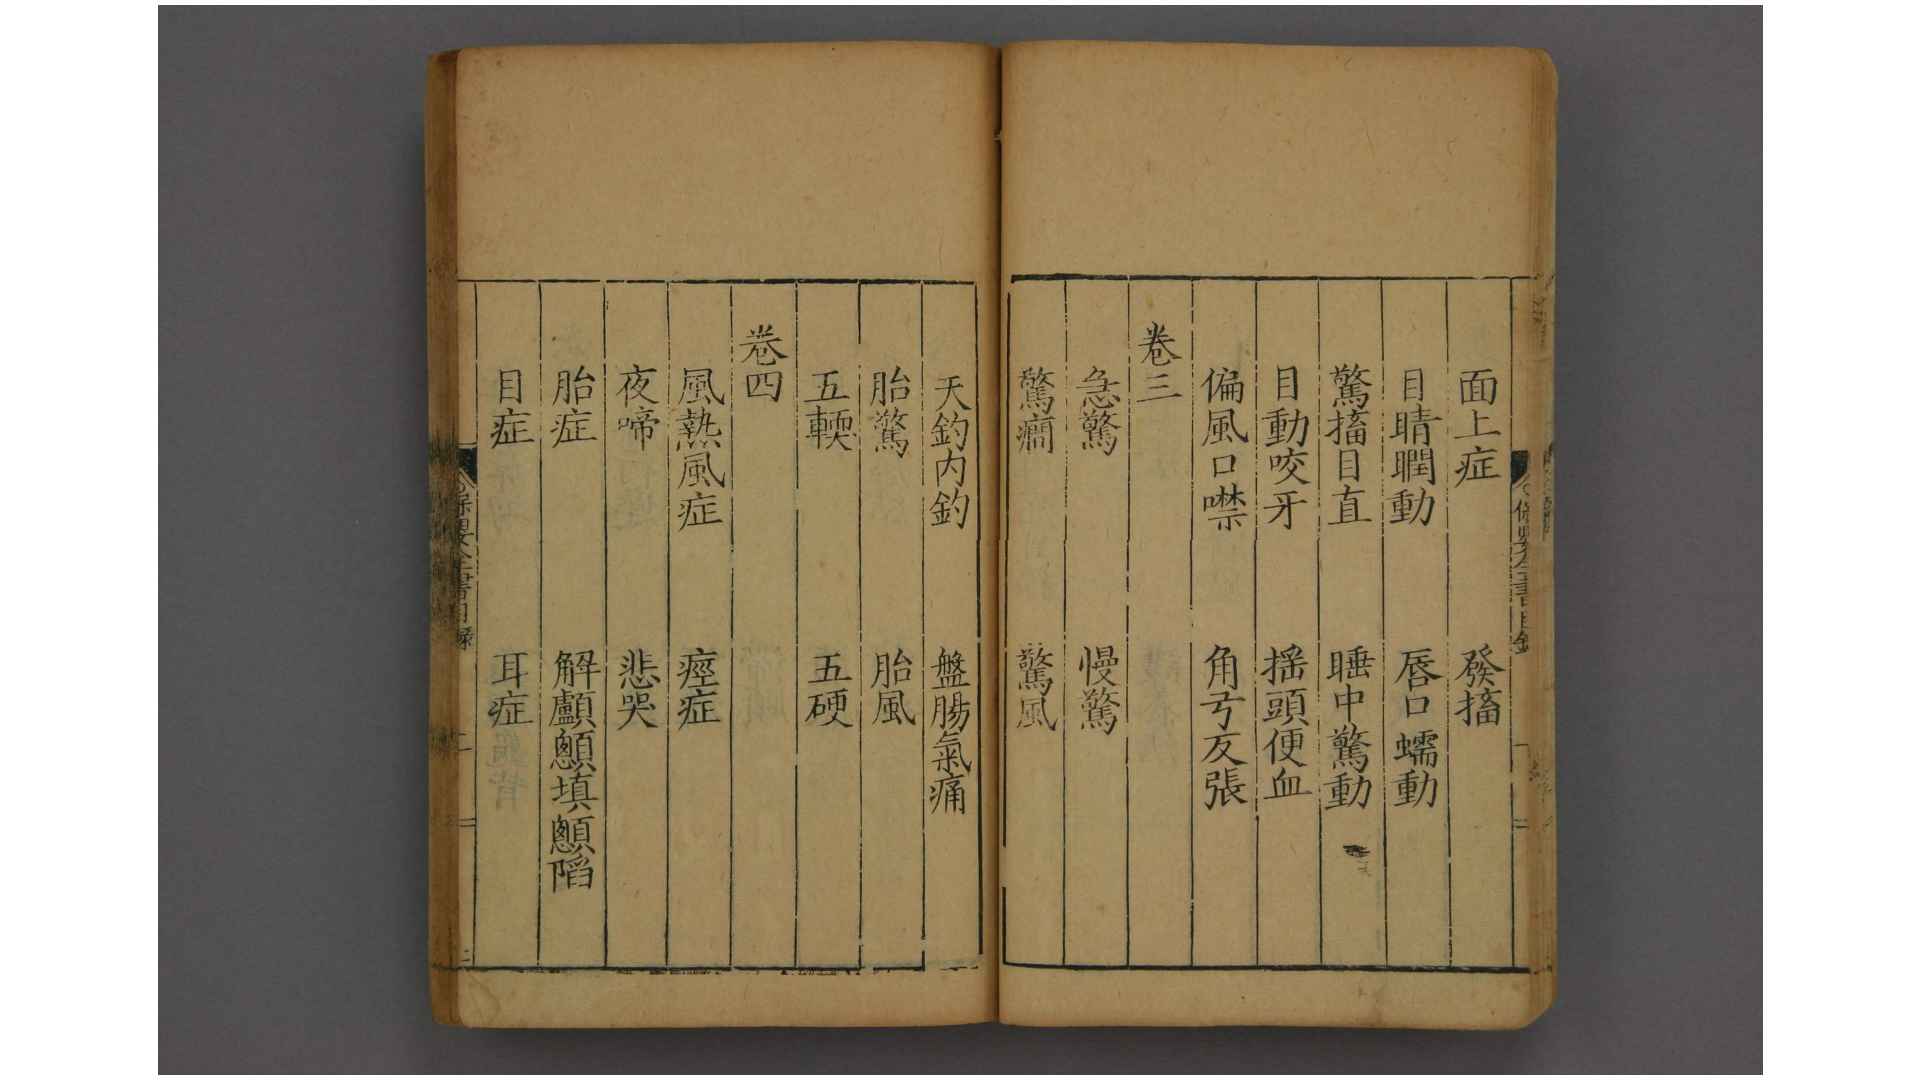 面上症 發搐
目睛瞤動 唇口蠕動
驚搐目直 睡中驚動
目動咬牙 搖頭便血
偏風口噤 角弓反張
卷三
急驚 慢驚
驚癇 驚風
天釣內釣 盤腸氣痛
胎驚 胎風
五輭 五硬
卷四
風熱風症 痙症
夜啼 悲哭
胎症 解顱顖填顖陷
目症 耳症
保嬰全書目錄